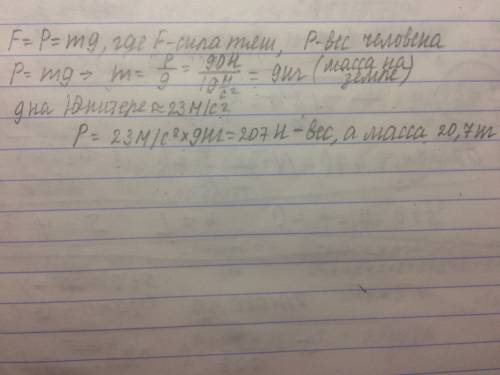 F = P = mg, где F-сила тяж, P-вес человека
P = mg → m = P/g = 90Н/10 м/с² = 9кг (масса на земле)
g на Юпитере ≈ 23 м/с²
P = 23 м/с² × 9кг = 207 Н - вес, а масса 20,7кг